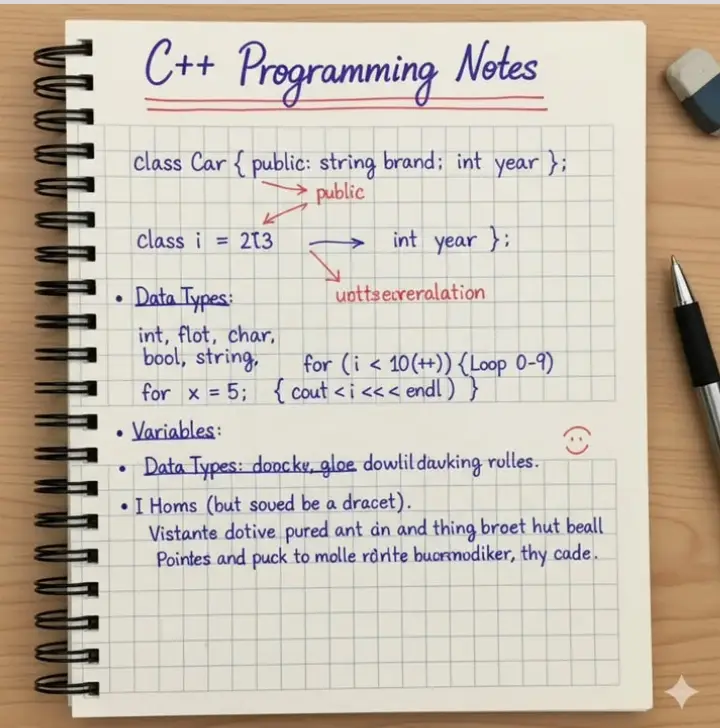 C++ Programming Notes
class Car { public: string brand; int year };
public
class i = 2τ3 → int year };
• Data Types:
int, flot, char,
bool, string, for (i < 10(++)) {Loop 0-9)
for x = 5; { cout <i <<< endl ) }
• Variables:
• Data Types: doocky, gloe dowlil davking rulles.
• I Homs (but soued be a dracet).
Vistante dotive pured ant an and thing broet hut beall
Pointes and puck to molle thy cade.